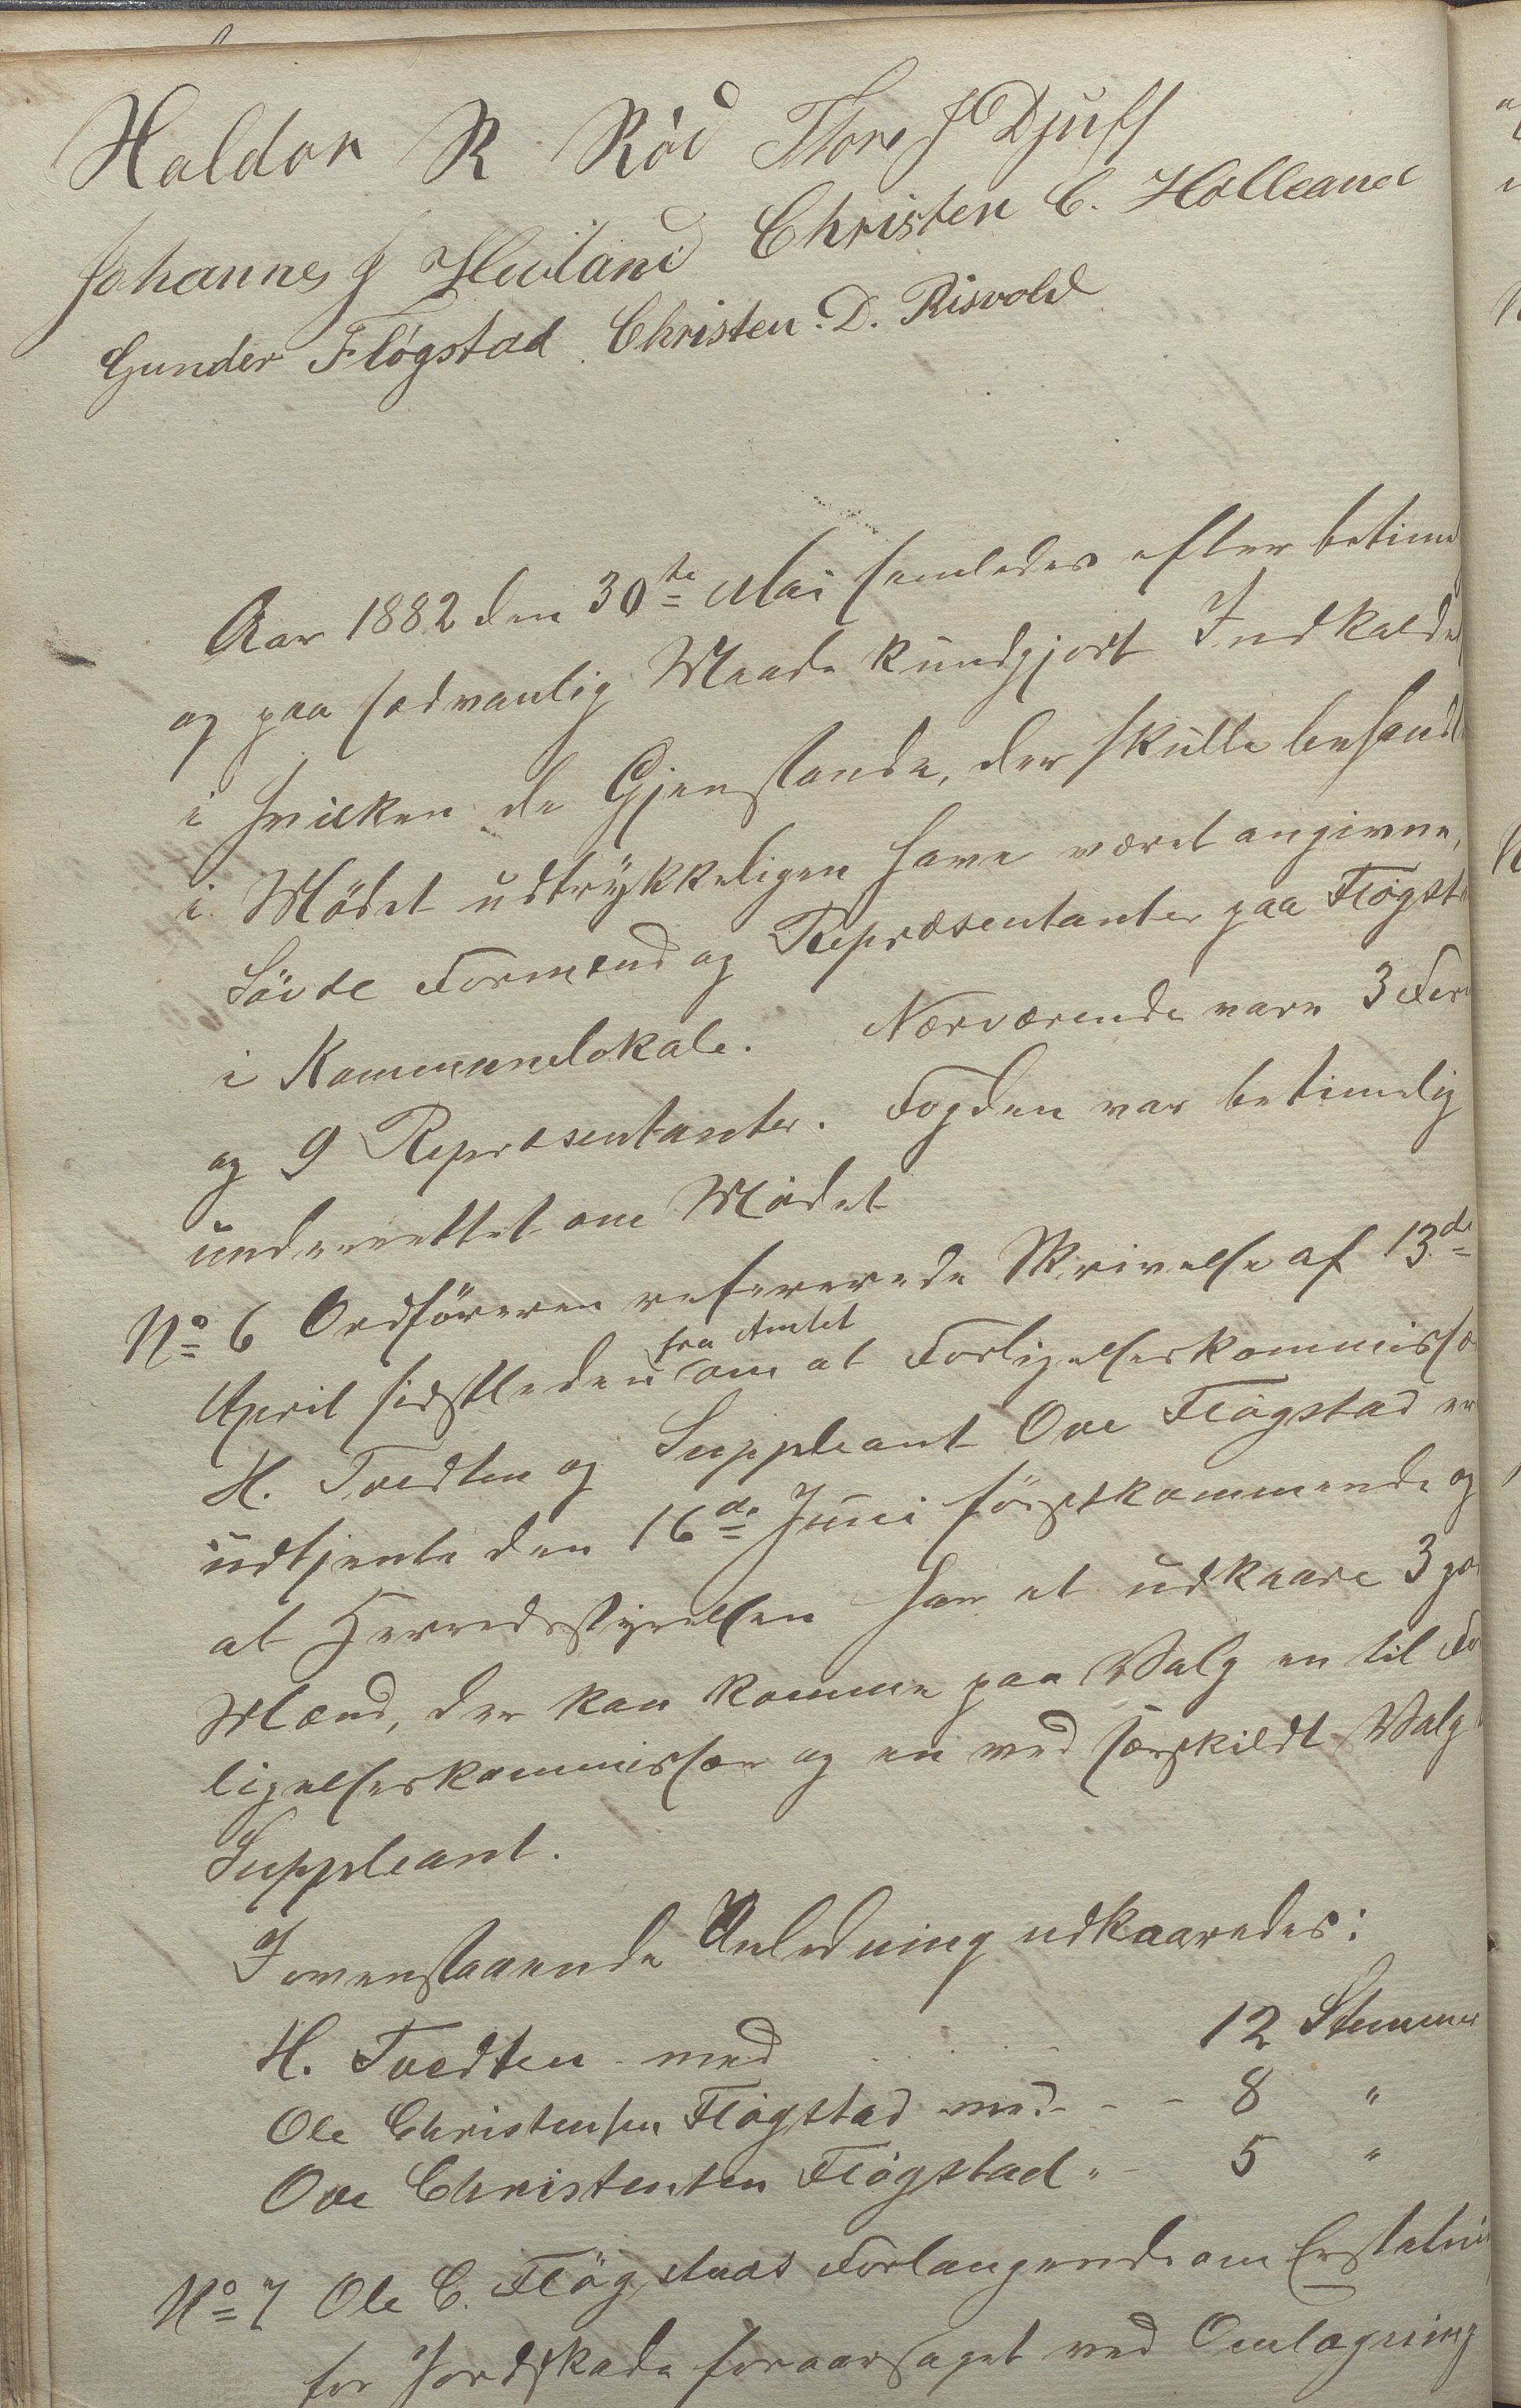 Haldor R Röd Thore J Djuff
Johannes J Hviland Christen C. Holleland
Gunder Fløgstad Christen D. Risvold
Aar 1882 den 30te Mai samledes efter betime
og paa sædvanlig Maade kundgjort Indkaldel
i hvilken de Gjenstande, der skulle behandl
i Mödet udtrykkeligen have været angivne,
Søvde Formænd og Repræsentanter paa Fløgst
i Kommunelokale. Nærværende vare 3 For
og 9 Repræsentanter. Fogden var betimelig
underrettet om Mödet
No 6 Ordföreren refererede Skrivelse af 13de
April sidstleden fra Amtet om at Forligelseskommissæ
H. Tvedten og Suppleant Ove Flögstad er
udtjente den 16de Juni förstkommende og
at Herredsstyrelsen har at udkaare 3
Mænd, der kan komme paa Valg en til Fo
ligelseskommissær og en ved særskildt Valg
Suppleant.
I ovenstaaende Anledning udkaaredes:
H. Tvedten med 12 Stemmer
Ole Christensen Flögstad med - - 8 "
Ove Christensen Flögstad " - 5 "
No 7 Ole C. Flögstads Forlangende om Erstatnin
for Jordskade foraarsaget ved Omlægning